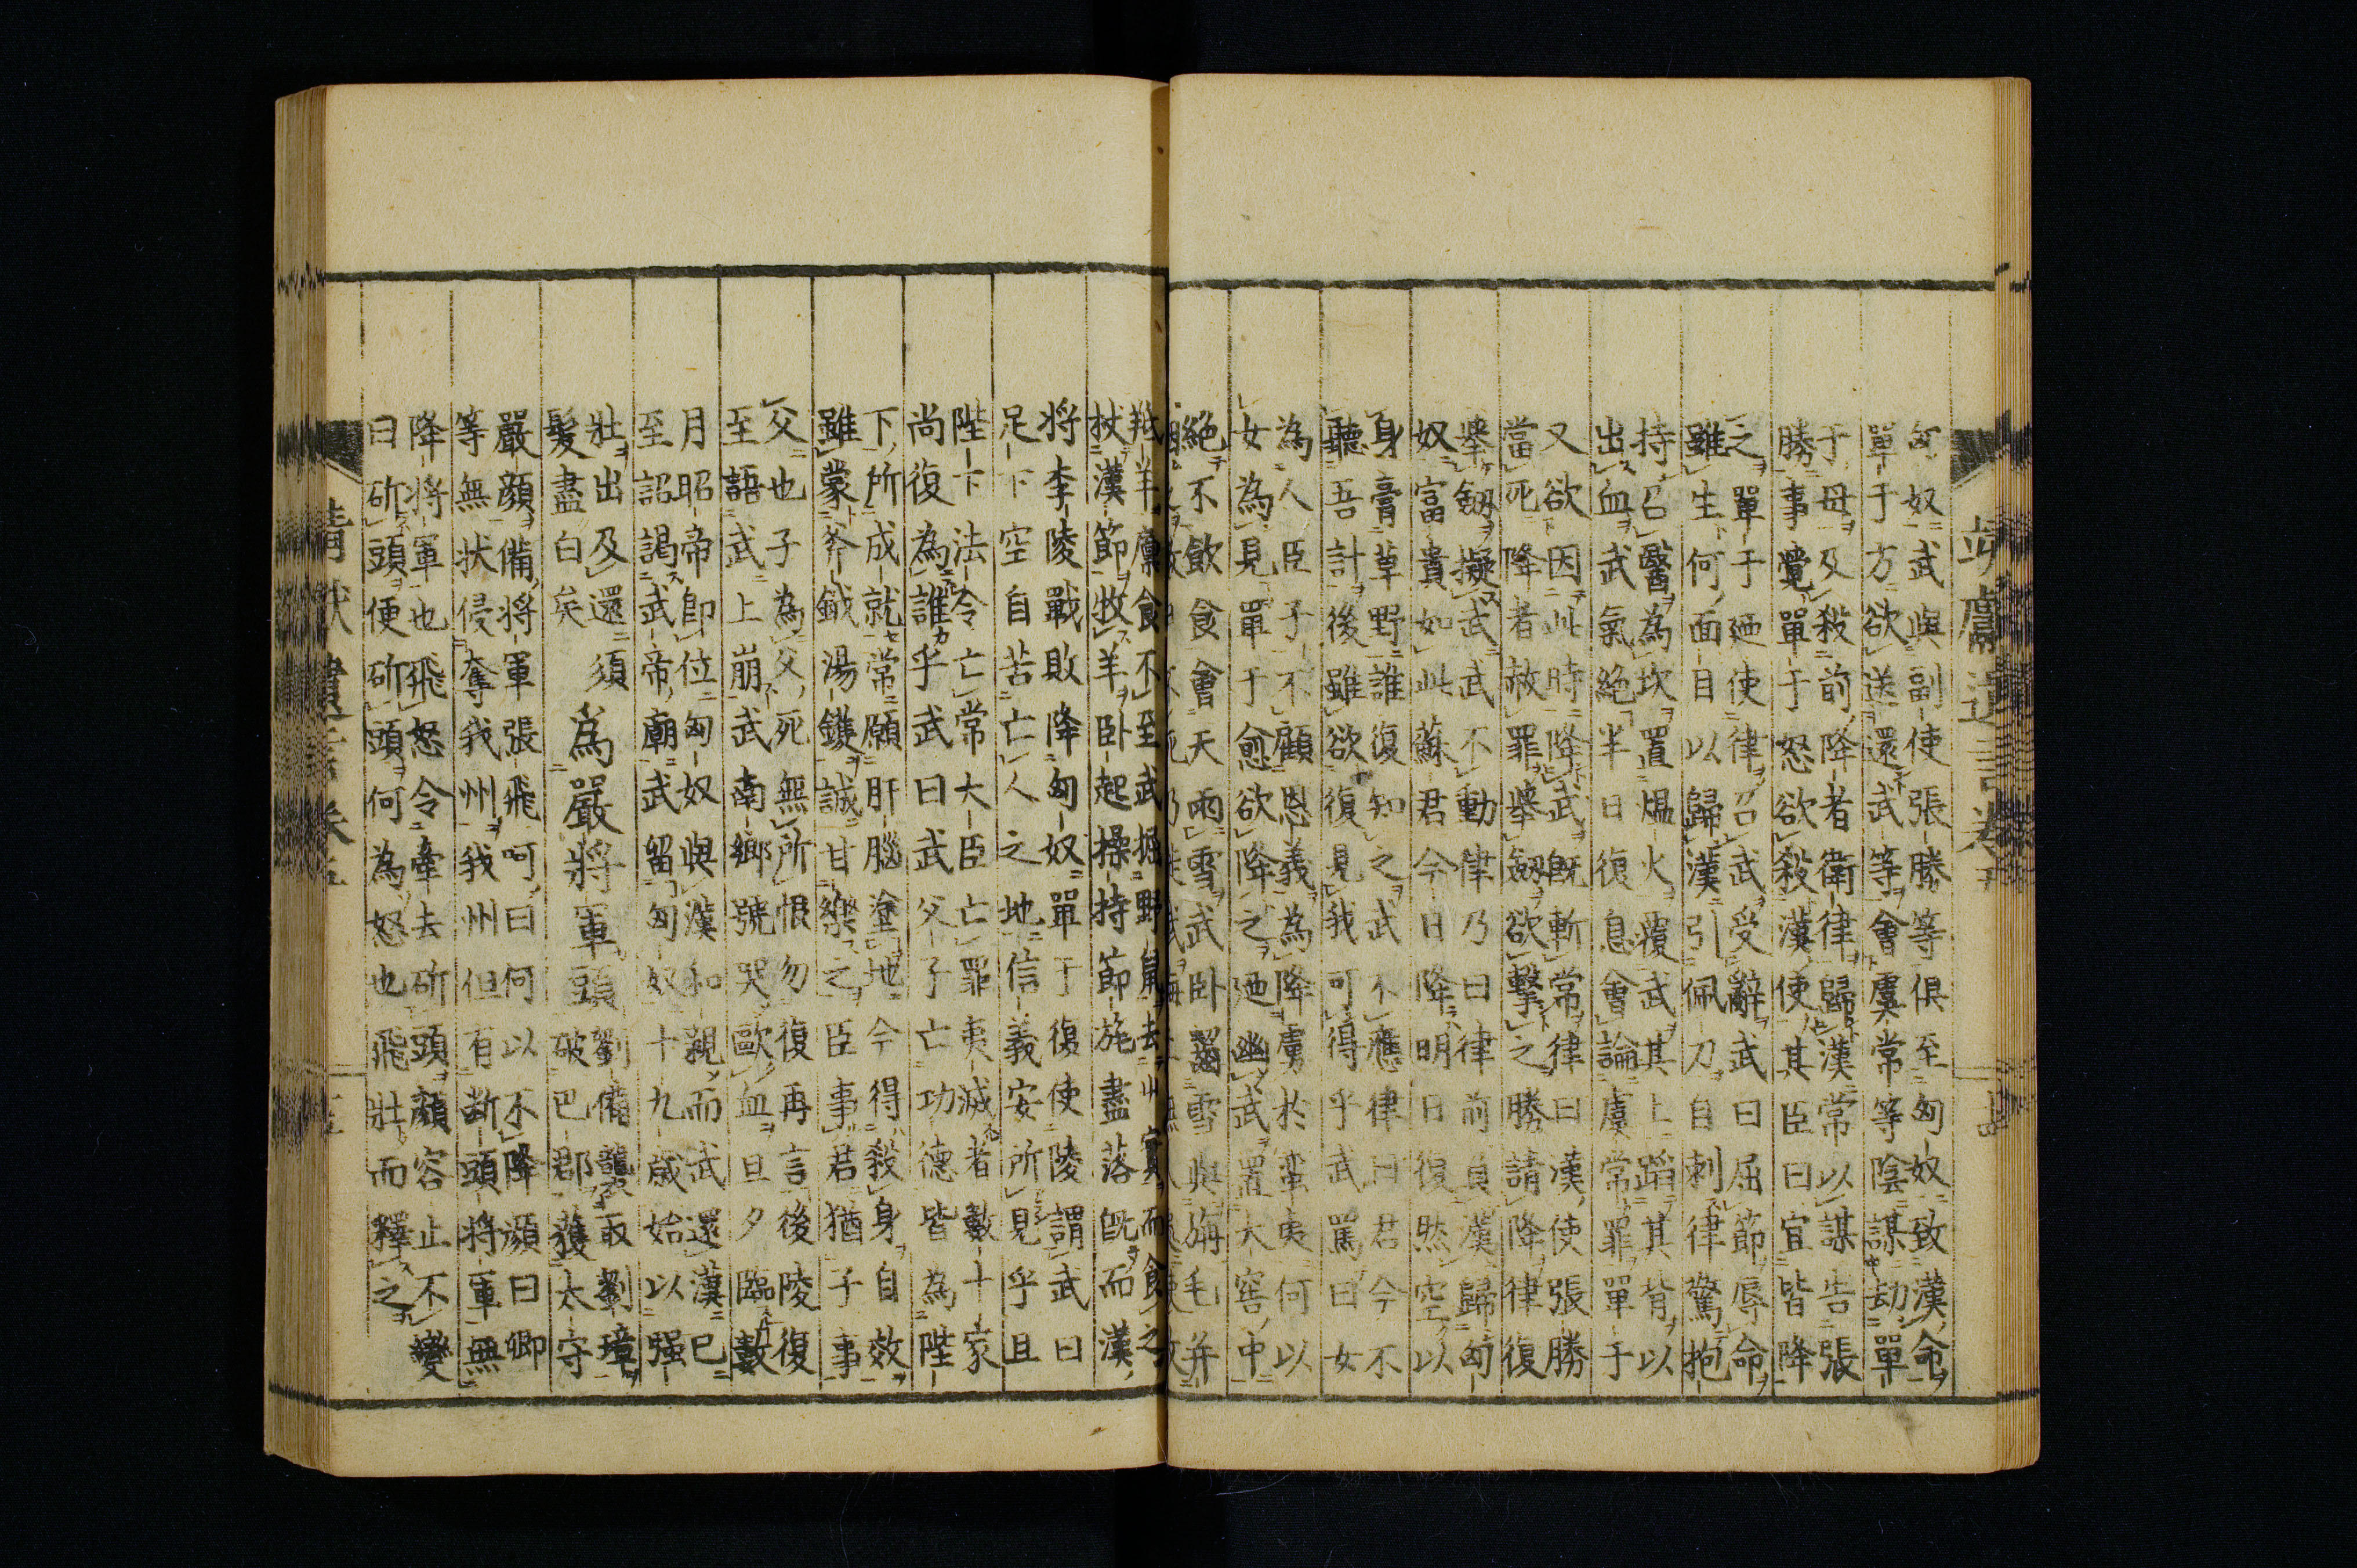 匈奴武與副使張勝等俱至匈奴致漢命
單于方欲送還武等會虞常等陰謀劫單
于母及殺前降者衛律歸漢常以謀告張
勝事覺單于怒欲殺漢使其臣曰宜皆降
之單于廼使律召武受辭武曰屈節辱命
雖生何面目以歸漢引佩刀自刺律驚抱
持召醫為坎置熅火覆武其上蹈其背以
出血武氣絶半日復息會論虞常罪單于
又欲因此時降武既斬常律曰漢使張勝
當死降者赦罪舉劒欲擊之勝請降律復
舉劒擬武武不動律乃曰律前負漢歸匈
奴富貴如此蘇君今日降明日復然空以
身膏草野誰復知之武不應律曰君今不
聽吾計後雖欲復見我可得乎武罵曰女
為人臣子不顧恩義為降虜於蠻夷何以
女為見單于愈欲降之廼幽武置大窖中
絶不飲食會天雨雪武卧齧雪與旃毛并
羝羊廩食不至武掘野鼠去屮實而食之
杖漢節牧羊卧起操持節旄盡落既而漢
將李陵戰敗降匈奴單于復使陵謂武曰
足下空自苦亡人之地信義安所見乎且
陛下法令亡常大臣亡罪夷滅者數十家
尚復為誰乎武曰武父子亡功德皆為陛
下所成就常願肝腦塗地今得殺身自效
雖蒙斧鉞湯鑊誠甘樂之臣事君猶子事
父也子為父死無所恨勿復再言後陵復
至語武上崩武南鄉號哭歐血旦夕臨數
月昭帝即位匈奴與漢和親而武還漢已
至詔謁武帝廟武留匈奴十九歲始以强
壯出及還須
髮盡白矣
為嚴將軍頭
劉備襲取劉璋
破巴郡獲太守
嚴顔備將軍張飛呵曰何以不降顔曰卿
等無状侵奪我州我州但有斷頭將軍無
降將軍也飛怒令牽去斫頭顔容止不變
曰斫頭便斫頭何為怒也飛壯而釋之